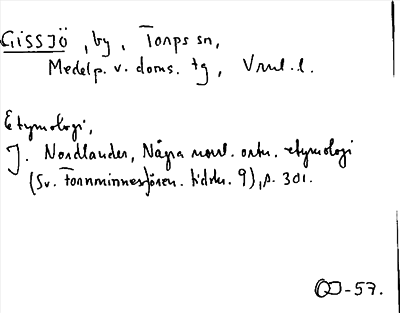 GISSJÖ, by, Torps sn,
Medelp. v. doms. tg, Vnul. l.
Etymologi,
J. Nordlander, Några norrl. ortn. etymologi
(Sv. Fornminnesfören. tidskr. 9), s. 301.
OJ-57.